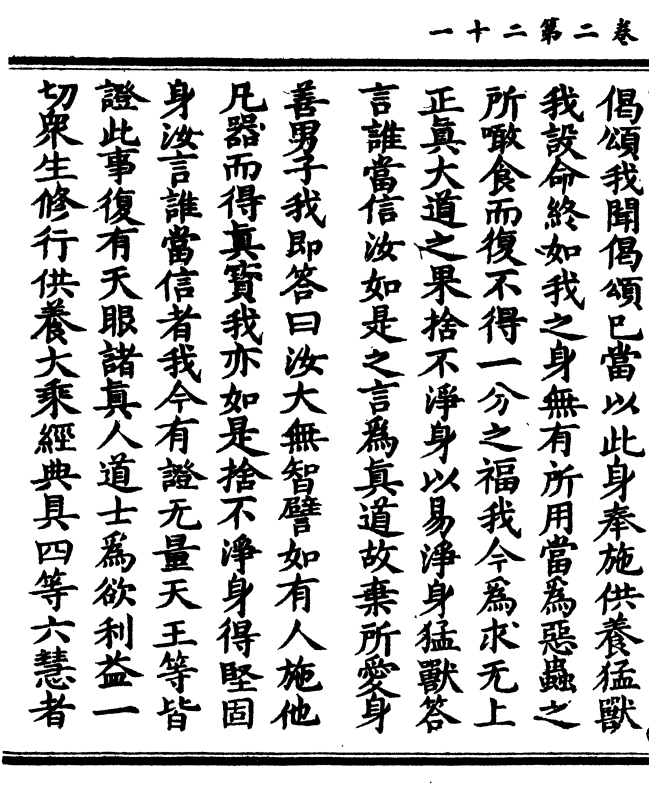 卷二第二十一
偈頌我聞偈頌已當以此身奉施供養猛獸
我設命終如我之身無有所用當為惡蟲之
所噉食而復不得一分之福我今為求无上
正真大道之果捨不淨身以易淨身猛獸答
言誰當信汝如是之言為真道故棄所愛身
善男子我即答曰汝大無智譬如有人施他
凡器而得真寶我亦如是捨不淨身得堅固
身汝言誰當信者我今有證无量天王等皆
證此事復有天眼諸真人道士為欲利益一
切眾生修行供養大乘經典具四等六慧者